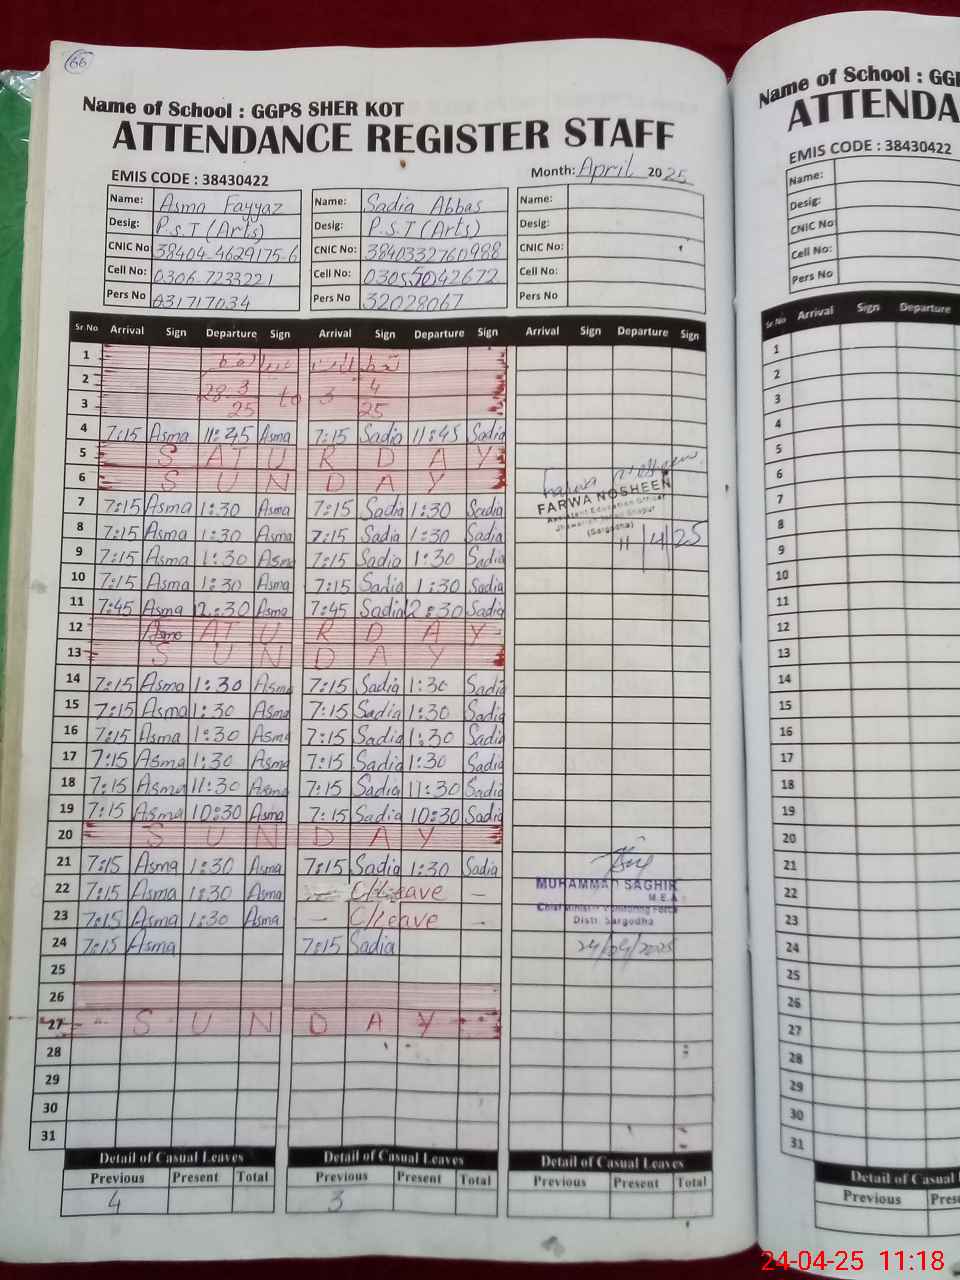 66
Name of School : GGPS SHER KOT
ATTENDANCE REGISTER STAFF
EMIS CODE : 38430422
Month: April 2025
Name: Asma Fayyaz Name: Sadia Abbas Name:
Desig: P.S.T (Arts) Desig: P.S.T (Arts) Desig:
CNIC No 38404-4629175-6 CNIC No: 3840332760988 CNIC No:
Cell No: 0306.7233221 Cell No: 03055042672 Cell No:
Pers No 031717034 Pers No 32028067 Pers No
Sr.No Arrival Sign Departure Sign Arrival Sign Departure Sign Arrival Sign Departure Sign
1
2 28-3 4
3 25 to 3 25
4 7:15 Asma 11:45 Asma 7:15 Sadia 11:45 Sadia
5 S A T U R D A Y
6 S U N D A Y
7 7:15 Asma 1:30 Asma 7:15 Sadia 1:30 Sadia
8 7:15 Asma 1:30 Asma 7:15 Sadia 1:30 Sadia
9 7:15 Asma 1:30 Asma 7:15 Sadia 1:30 Sadia
10 7:15 Asma 1:30 Asma 7:15 Sadia 1:30 Sadia
11 7:45 Asma 12:30 Asma 7:45 Sadia 12:30 Sadia
12 Asma S A T U R D A Y
13 S U N D A Y
14 7:15 Asma 1:30 Asma 7:15 Sadia 1:30 Sadia
15 7:15 Asma 1:30 Asma 7:15 Sadia 1:30 Sadia
16 7:15 Asma 1:30 Asma 7:15 Sadia 1:30 Sadia
17 7:15 Asma 1:30 Asma 7:15 Sadia 1:30 Sadia
18 7:15 Asma 11:30 Asma 7:15 Sadia 11:30 Sadia
19 7:15 Asma 10:30 Asma 7:15 Sadia 10:30 Sadia
20 S U N D A Y
21 7:15 Asma 1:30 Asma 7:15 Sadia 1:30 Sadia
22 7:15 Asma 1:30 Asma C/Leave -
23 7:15 Asma 1:30 Asma - C/Leave -
24 7:15 Asma 7:15 Sadia
25
26
27 S U N D A Y
28
29
30
31
Detail of Casual Leaves Detail of Casual Leaves Detail of Casual Leaves
Previous Present Total Previous Present Total Previous Present Total
4 3
Farwa Nosheen
FARWA NOSHEEN
Assistant Education Officer
(Sargodha)
11/4/25
MUHAMMAD SAGHIR
M.E.A
Chief Minister Monitoring Force
Distt. Sargodha
24/04/2025
Name of School : GGP
ATTENDA
EMIS CODE : 38430422
Name:
Desig:
CNIC No
Cell No:
Pers No
Sr.No Arrival Sign Departure
1
2
3
4
5
6
7
8
9
10
11
12
13
14
15
16
17
18
19
20
21
22
23
24
25
26
27
28
29
30
31
Detail of Casual
Previous Pres
24-04-25 11:18